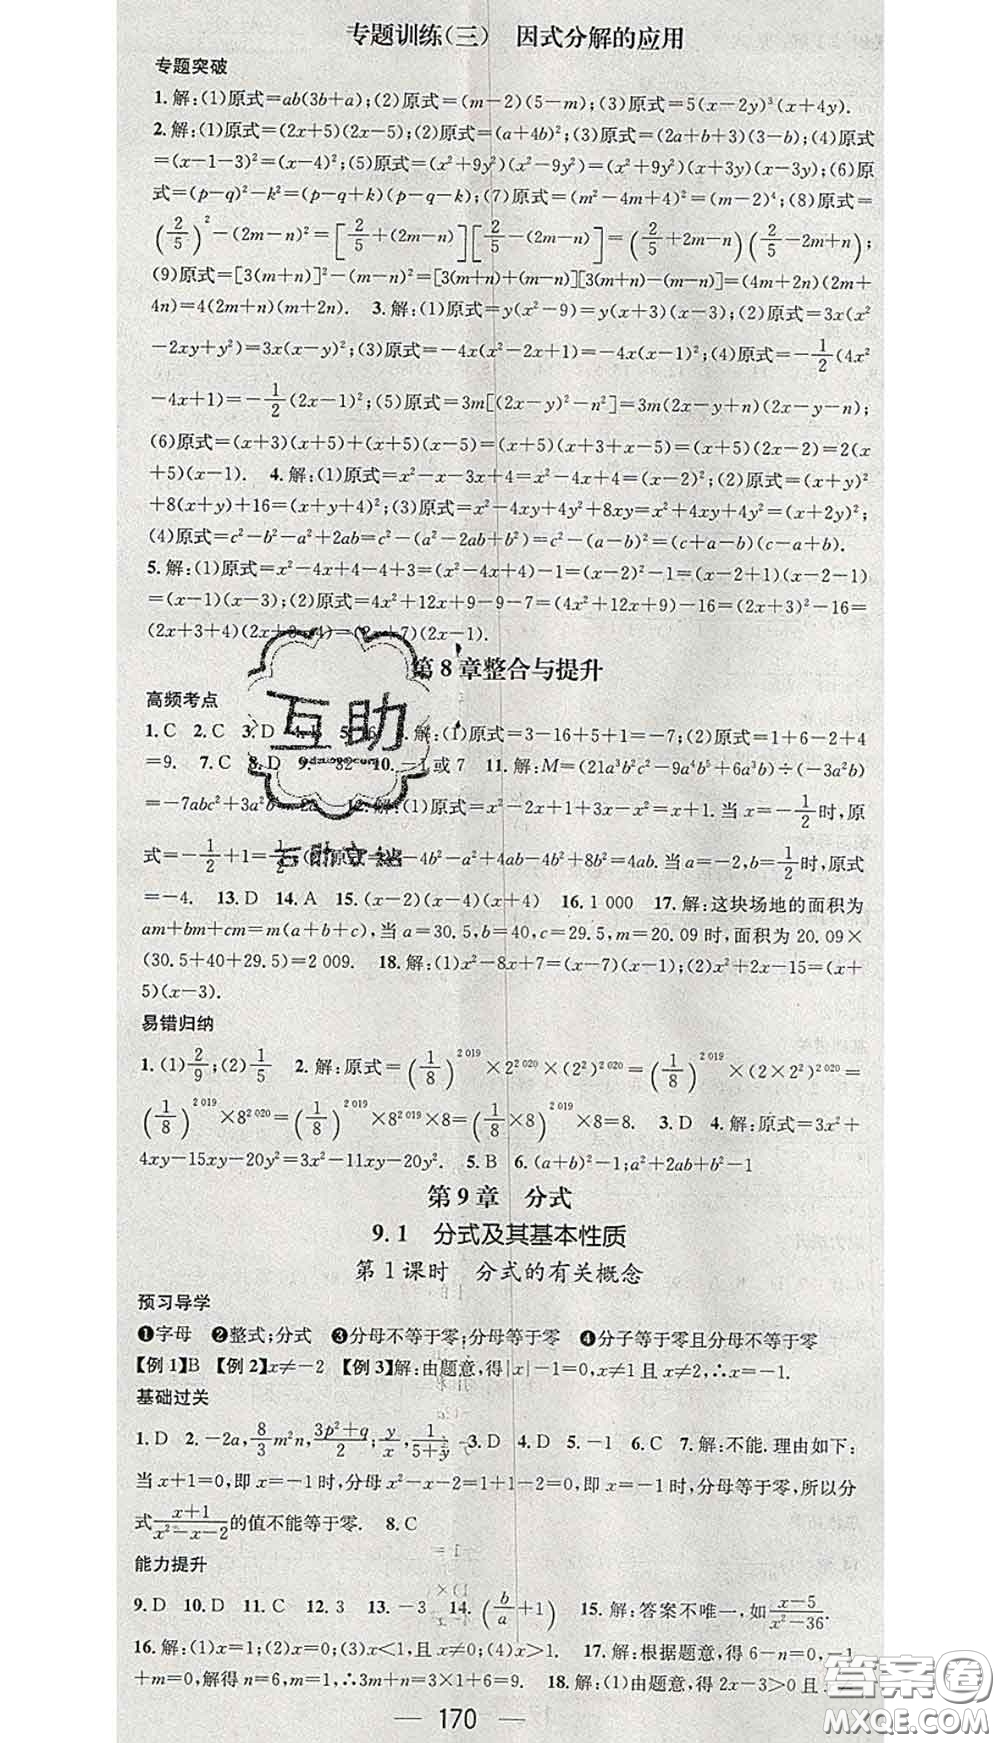 专题训练(三)　因式分解的应用
专题突破
1.解:(1)原式=ab(3b+a);(2)原式=(m-2)(5-m);(3)原式=5(x-2y)³(x+4y).
2.解:(1)原式=(2x+5)(2x-5);(2)原式=(a+4b)²;(3)原式=(2a+b+3)(3-b);(4)原式
=(x-1-3)²=(x-4)²;(5)原式=(x²+9y²)(x²-9y²)=(x²+9y²)(x+3y)(x-3y);(6)原式=
(p-q)²-k²=(p-q+k)(p-q-k);(7)原式=(m²-4m+4)²=(m-2)⁴;(8)原式=
(2/5)²-(2m-n)²=[2/5+(2m-n)][2/5-(2m-n)]=(2/5+2m-n)(2/5-2m+n);
(9)原式=[3(m+n)]²-(m-n)²=[3(m+n)+(m-n)][3(m+n)-(m-n)]=(4m+2n)(2m+
4n)=4(2m+n)(m+2n).　3.解:(1)原式=y(x²-9)=y(x+3)(x-3);(2)原式=3x(x²
-2xy+y²)=3x(x-y)²;(3)原式=-4x(x²-2x+1)=-4x(x-1)²;(4)原式=-1/2(4x²
-4x+1)=-1/2(2x-1)²;(5)原式=3m[(2x-y)²-n²]=3m(2x-y+n)(2x-y-n);
(6)原式=(x+3)(x+5)+(x+5)(x-5)=(x+5)(x+3+x-5)=(x+5)(2x-2)=2(x
+5)(x-1).　4.解:(1)原式=x²-x-3x+4=x²-4x+4=(x-2)²;(2)原式=(x+y)²
+8(x+y)+16=(x+y+4)²;(3)原式=x²-4xy+4y²+8xy=x²+4xy+4y²=(x+2y)²;
(4)原式=c²-b²-a²+2ab=c²-(a²-2ab+b²)=c²-(a-b)²=(c+a-b)(c-a+b).
5.解:(1)原式=x²-4x+4-4+3=(x²-4x+4)-1=(x-2)²-1=(x-2+1)(x-2-1)
=(x-1)(x-3);(2)原式=4x²+12x+9-9-7=(4x²+12x+9)-16=(2x+3)²-16=
(2x+3+4)(2x+3-4)=(2x+7)(2x-1).
第 8 章整合与提升
高频考点
1.C　2.C　3.D　解:(1)原式=3-16+5+1=-7;(2)原式=1+6-2+4
=9.　7.C　8.D　9.　10.-1或7　11.解:M=(21a³b²c-9a⁴b⁵+6a³b)÷(-3a²b)
=-7abc²+3a²b　12.解:(1)原式=x²-2x+1+3x-x²=x+1.当x=-1/2时,原
式=-1/2+1=1/2;(2)原式-4b²-a²+4ab-4b²+8b²=4ab.当a=-2,b=1/2时,原式
=-4.　13.D　14.A　15.(x-2)(x-4)(x+4)　16.1 000　17.解:这块场地的面积为
am+bm+cm=m(a+b+c),当a=30.5,b=40,c=29.5,m=20.09时,面积为20.09×
(30.5+40+29.5)=2 009.　18.解:(1)x²-8x+7=(x-7)(x-1);(2)x²+2x-15=(x+
5)(x-3).
易错归纳
1.(1)2/9;(2)1/5　2.解:原式=(1/8)^2 019×2^2 020×(2²)^2 020=(1/8)^2 019×(2×2²)^2 020=
(1/8)^2 019×8^2 020=(1/8)^2 019×8^2 019×8=(1/8×8)^2 019×8=8.　3.D　4.解:原式=3x²+
4xy-15xy-20y²=3x²-11xy-20y².　5.B　6.(a+b)²-1;a²+2ab+b²-1
第 9 章　分式
9.1　分式及其基本性质
第 1 课时　分式的有关概念
预习导学
❶字母　❷整式;分式　❸分母不等于零;分母等于零　❹分子等于零且分母不等于零
【例1】B　【例2】x≠-2　【例3】解:由题意,得|x|-1=0,x≠1且x≠-1.
基础过关
1.D　2.-2a,8/3m²n,(3p²+q)/2;y/x,1/(5+y)　3.D　4.D　5.-1　6.C　7.解:不能.理由如下:
当x+1=0,即x=-1时,分母x²-x-2=1+1-2=0,即x=-1时,分母等于零,所以分
式(x+1)/(x²-x-2)的值不能等于零.　8.C
能力提升
9.D　10.D　11.C　12.3　13.-3　14.(b/a+1)　15.解:答案不唯一,如(x-5)/(x²-36).
16.解:(1)x=1;(2)x=0;(3)x<1,且x≠0;(4)x>1.　17.解:根据题意,得6-n=0,-1
+m=0,解得n=6,m=1,∴3m+n=3×1+6=9.　18.解:(1)由题意,得2x-3>0且
170
互助
答案圈
MXQE.COM